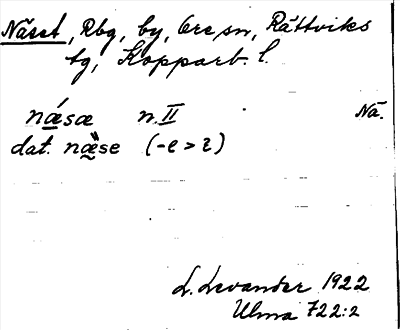 Näset, Rbg, by, Ore sn, Rättviks
tg, Kopparb. l.
næ´sæ n. II Nä.
dat. næ̀se (-e > ı)
L. Levander 1922
Ulma 722:2